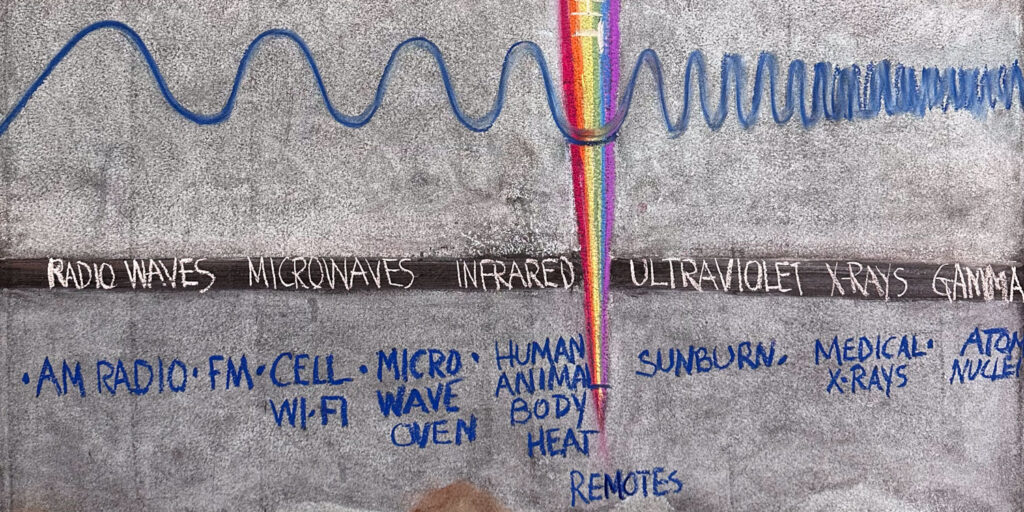 RADIO WAVES MICROWAVES INFRARED ULTRAVIOLET X-RAYS GAMMA
• AM RADIO • FM • CELL WI-FI • MICRO WAVE OVEN • HUMAN ANIMAL BODY HEAT
REMOTES
SUNBURN • MEDICAL X-RAYS • ATOM